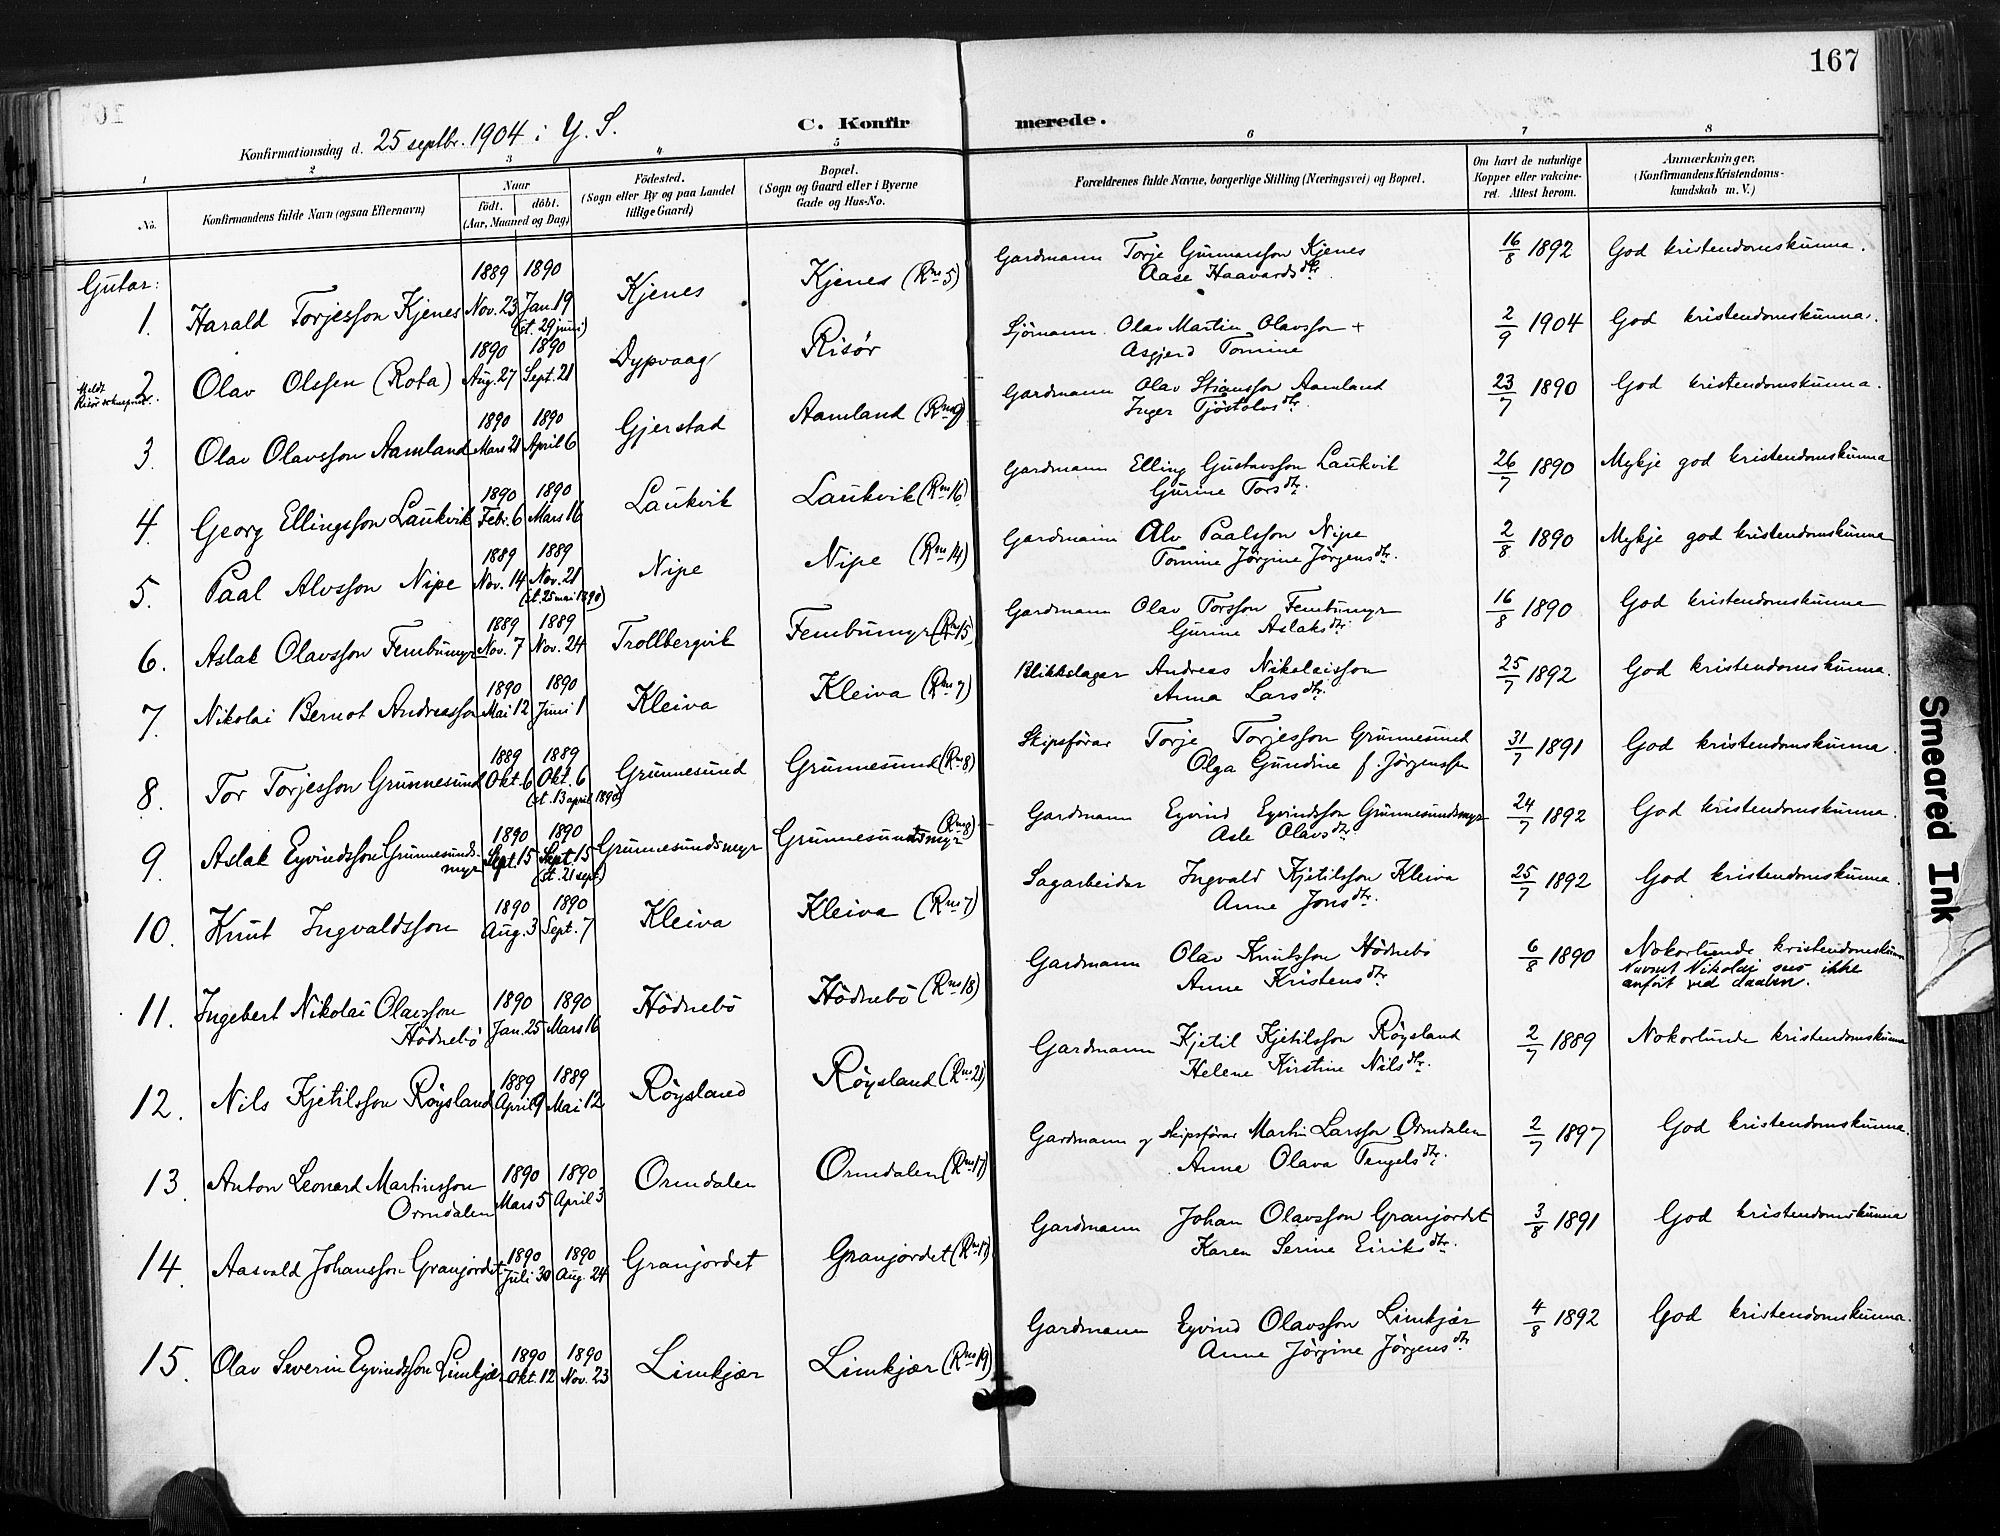 167
Konfirmationsdag d. 25 septbr. 1904 i Y. S.
C. Konfirmerede.
1 2 3 4 5 6 7 8
No.
Konfirmandens fulde Navn (ogsaa Efternavn)
Naar
födt. döbt.
(Aar, Maaned og Dag)
Födested.
(Sogn eller By og paa Landet
tillige Gaard)
Bopæl.
(Sogn og Gaard eller i Byerne
Gade og Hus-No.
Forældrenes fulde Navne, borgerlige Stilling (Næringsvei) og Bopæl.
Om havt de naturlige
Kopper eller vakcine-
ret. Attest herom.
Anmærkninger.
(Konfirmandens Kristendoms-
kundskab m. V.)
Gutar:
1. Harald Torjesson Kjenes 1889 Nov. 23 1890 Jan. 19 (st. 29 juni) Kjenes Kjenes (Rns 5) Gardmann Torje Gunnarsson Kjenes 16/8 1892 God kristendomskunna.
Aase Haavardsdtr.
Meldt
2. Olav Olssen (Rota) 1890 Aug. 27 1890 Sept. 21 Dypvaag Risör Sjömann Olav Martin Olavsson + 2/9 1904 God kristendomskunna.
Asgjerd Tomine
3. Olav Olavsson Aamland 1890 Mars 21 1890 April 6 Gjerstad Aamland (Rns 9) Gardmann Olav Stiansson Aamland 23/7 1890 God kristendomskunna.
Inger Tjöstolvsdtr.
4. Georg Ellingsson Laukvik 1890 Febr. 6 1890 Mars 16 Laukvik Laukvik (Rns 16) Gardmann Elling Gustavsson Laukvik 26/7 1890 Mykje god kristendomskunna
Gurine Torsdtr.
5. Paal Alvsson Nipe 1889 Nov. 14 1889 Nov. 21 (st. 25 mai 1890) Nipe Nipe (Rns 14) Gardmann Alv Paalsson Nipe 2/8 1890 Mykje god kristendomskunna
Tomine Jörgine Jörgensdtr.
6. Aslak Olavsson Fembumyr 1889 Nov. 7 1889 Nov. 24 Trollbergvik Fembumyr (Rns 15) Gardmann Olav Torsson Fembumyr 16/8 1890 God kristendomskunna
Gurine Aslaksdtr.
7. Nikolai Bernot Andreasson 1890 Mai 12 1890 Juni 1 Kleiva Kleiva (Rns 7) Blikkslager Andreas Nikolaisson 25/7 1892 God kristendomskunna.
Anna Larsdtr.
8. Tor Torjesson Grunnesund 1889 Okt. 6 1889 Okt. 6 (st. 13 april 1890) Grunnesund Grunnesund (Rns 8) Skipsförar Torje Torjesson Grunnesund 31/7 1891 God kristendomskunna.
Olga Gundine f. Jörgenssen
9. Aslak Eyvindsson Grunnesunds-
myr 1890 Sept. 15 1890 Sept. 15 (st. 21 sept.) Grunnesundsmyr Grunnesundsmyr (Rns 8) Gardmann Eyvind Eyvindsson Grunnesundsmyr 24/7 1892 God kristendomskunna.
Asle Olavsdtr.
10. Knut Ingvaldsson 1890 Aug. 3 1890 Sept. 7 Kleiva Kleiva (Rns 7) Sagarbeidar Ingvald Kjetilsson Kleiva 25/7 1892 God kristendomskunna.
Anne Jonsdtr.
11. Ingebert Nikolai Olavsson
Hödnebö 1890 Jan. 25 1890 Mars 16 Hödnebö Hödnebö (Rns 18) Gardmann Olav Knutsson Hödnebö 6/8 1890 Nokorlunde kristendomskunna
Anne Kristensdtr.
Navnet Nikolai sees ikke
anfört ved daaben.
12. Nils Kjetilsson Röysland 1889 April 9 1889 Mai 12 Röysland Röysland (Rns 21) Gardmann Kjetil Kjetilsson Röysland 2/7 1889 Nokorlunde kristendomskunna
Helene Kirstine Nilsdtr.
13. Anton Leonard Martinsson
Ormdalen 1890 Mars 5 1890 April 3 Ormdalen Ormdalen (Rns 17) Gardmann og skipsförar Martin Larsson Ormdalen 2/7 1897 God kristendomskunna.
Anne Olava Tengelsdtr.
14. Aasvald Johansson Granjordet 1890 Juli 30 1890 Aug. 24 Granjordet Granjordet (Rns 17) Gardmann Johan Olavsson Granjordet 3/8 1891 God kristendomskunna
Karen Serine Eiriksdtr.
15. Olav Severin Eyvindsson Limkjær 1890 Okt. 12 1890 Nov. 23 Limkjær Limkjær (Rns 19) Gardmann Eyvind Olavsson Limkjær 4/8 1892 God kristendomskunna.
Anne Jörgine Jörgensdtr.
Smeared Ink